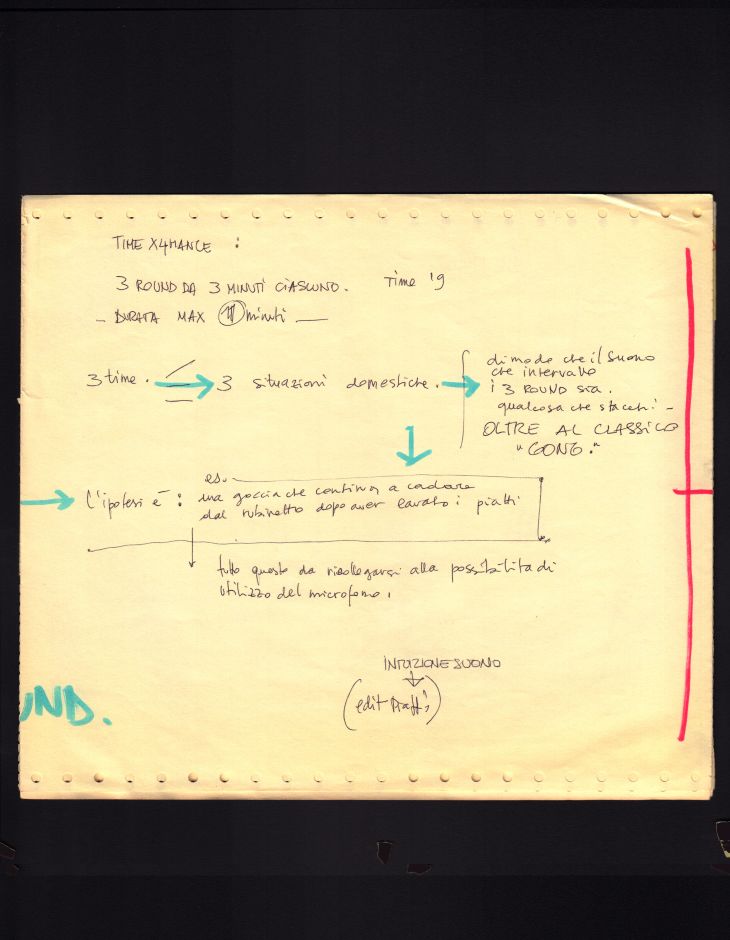 TIME X4MANCE :
3 ROUND DA 3 MINUTI CIASCUNO. Time '9
- DURATA MAX 11 minuti -
3 time. → 3 situazioni domestiche. →
di modo che il suono
che intervalla
i 3 ROUND sia.
qualcosa che stacchi -
OLTRE AL CLASSICO
"GONG."
→ L'ipotesi è :
es.
una goccia che continua a cadere
dal rubinetto dopo aver lavato i piatti
tutto questo da ricollegarsi alla possibilità di
utilizzo del microfono.
INTUZIONE SUONO
(edit Piatti)
UND.